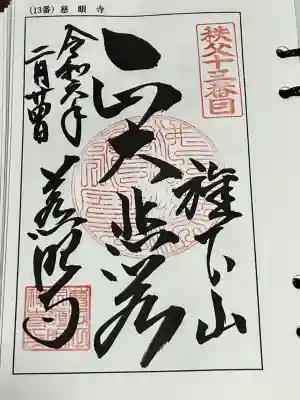 (13番)慈眼寺
秩父十三番目
旗下山
大悲
慈眼寺
令和六年
二月